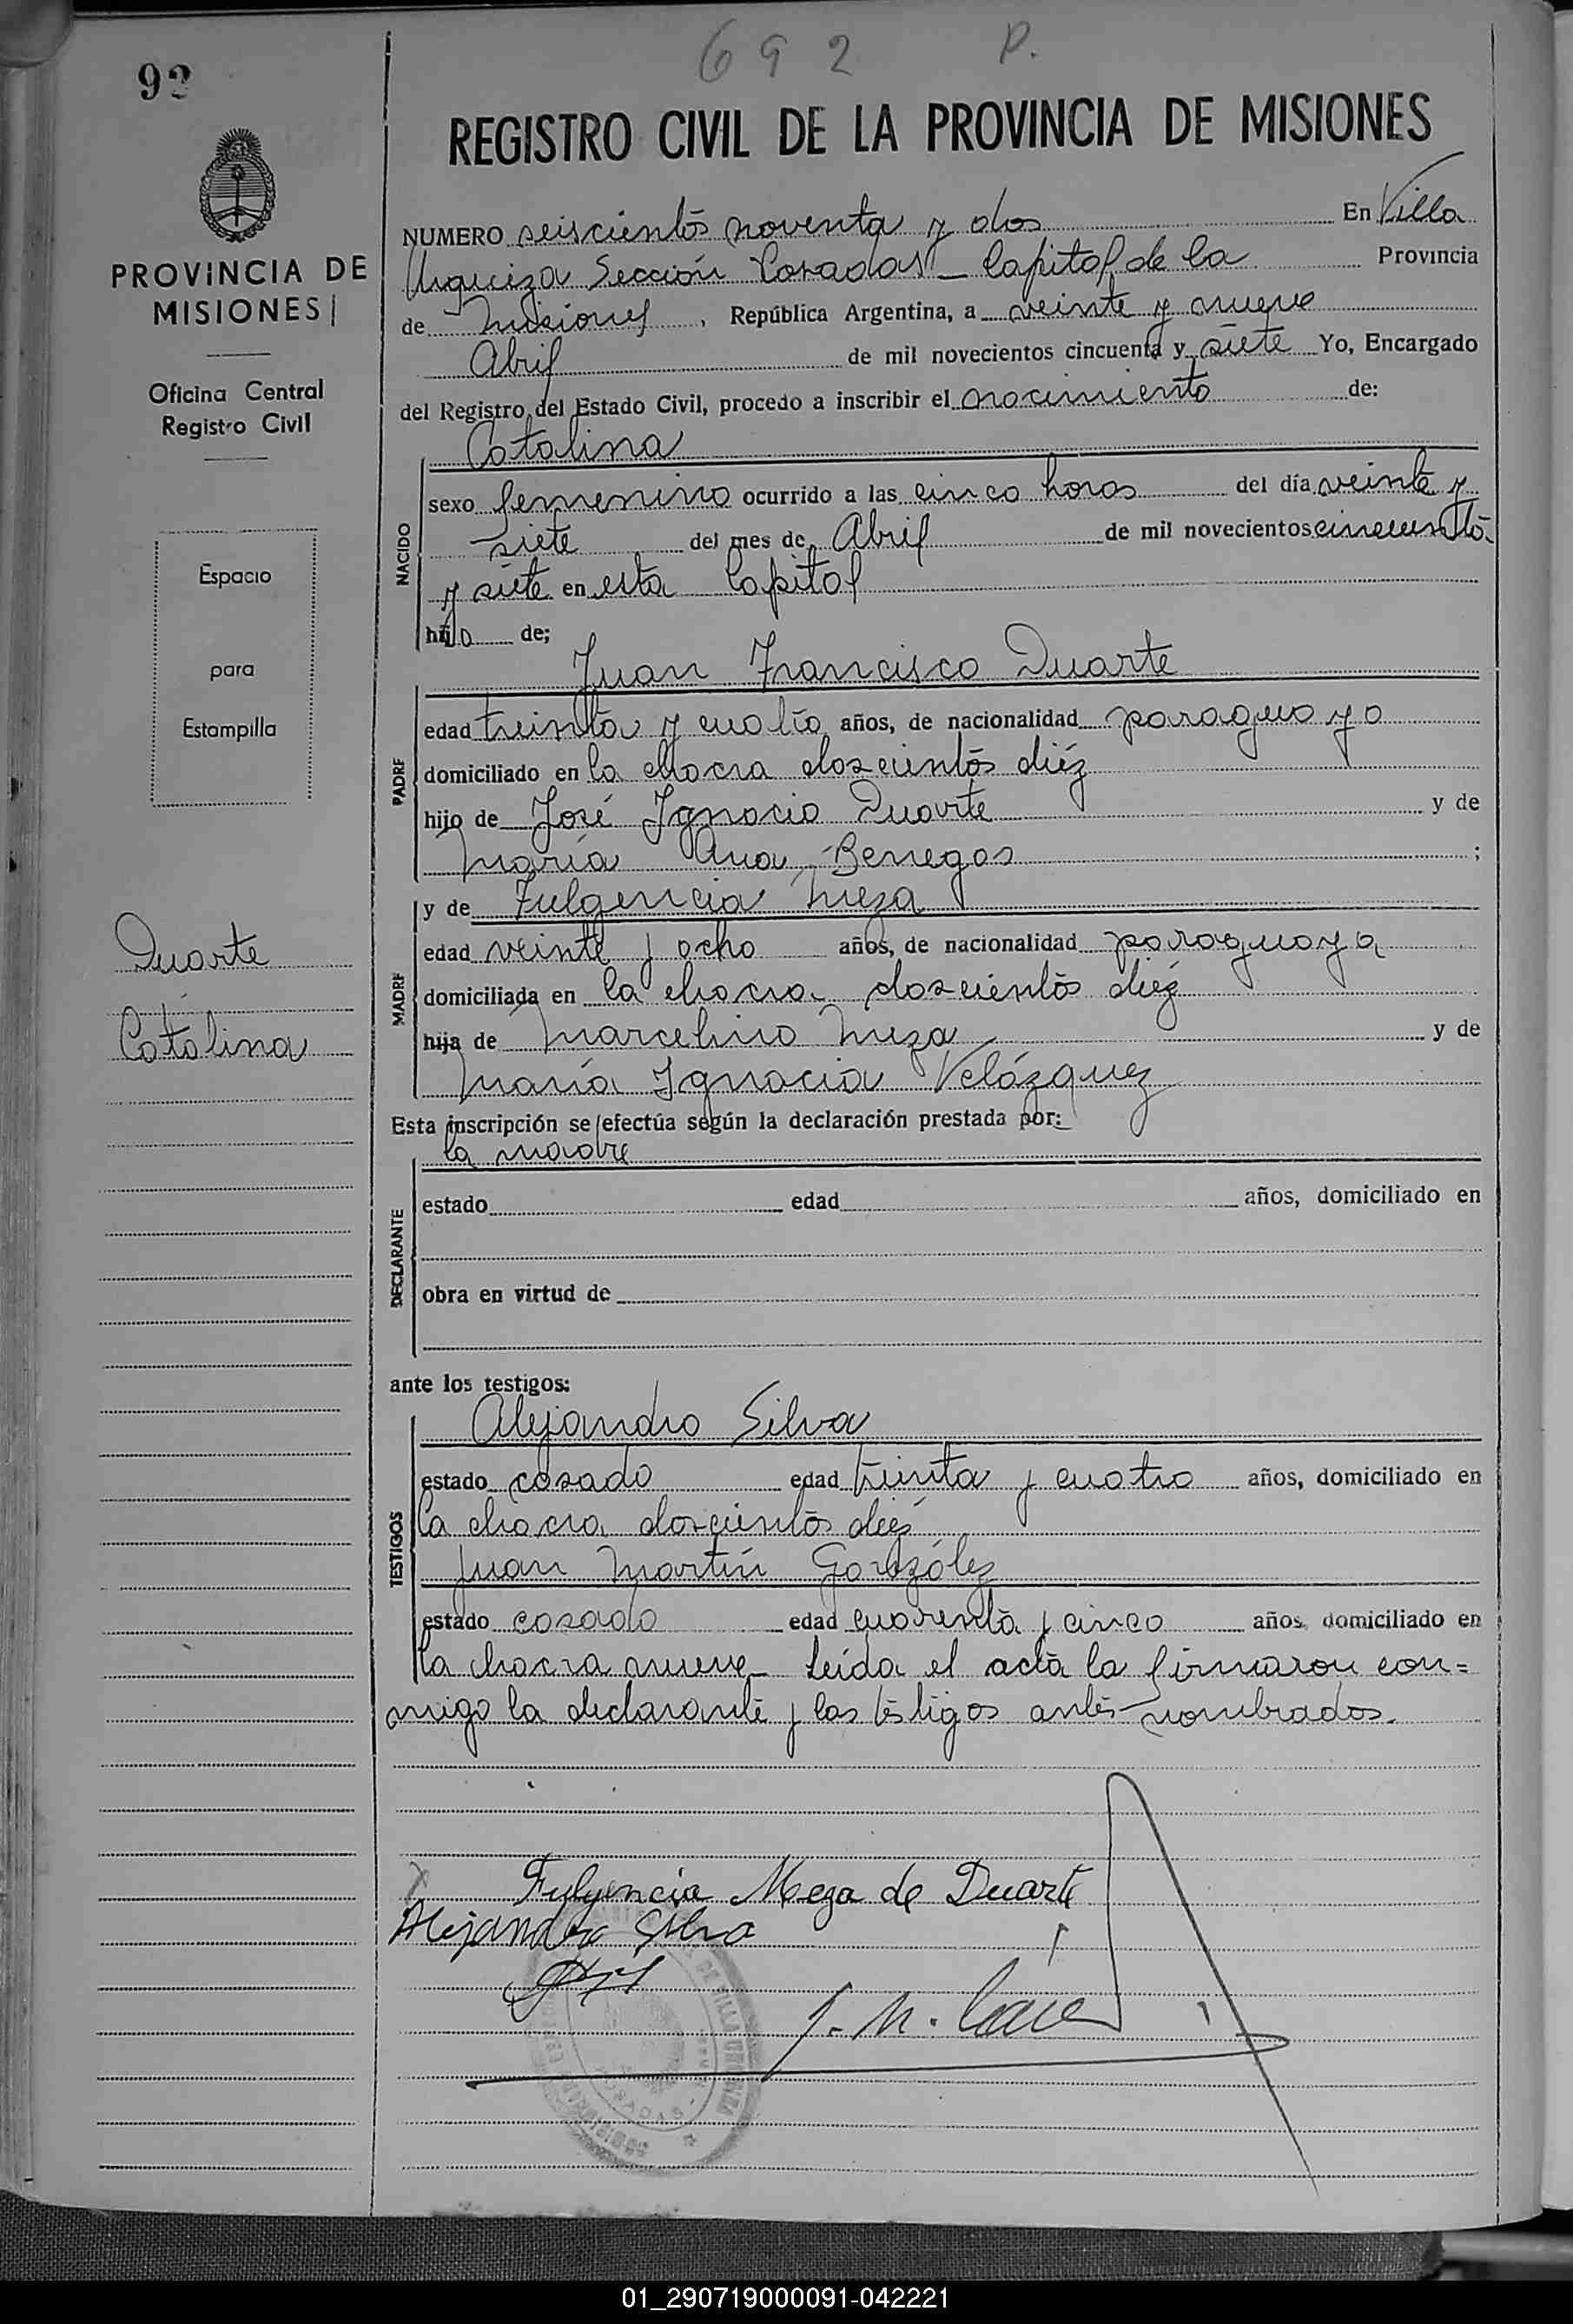 692 P.
92
REGISTRO CIVIL DE LA PROVINCIA DE MISIONES
PROVINCIA DE
MISIONES
Oficina Central
Registro Civil
Espacio
para
Estampilla
Duarte
Catalina
NUMERO seiscientos noventa y dos En Villa
Urquiza Sección Posadas - Capital de la Provincia
de Misiones, República Argentina, a veinte y nueve
Abril de mil novecientos cincuenta y siete Yo, Encargado
del Registro del Estado Civil, procedo a inscribir el nacimiento de:
Catalina
NACIDO
sexo femenino ocurrido a las cinco horas del día veinte y
siete del mes de Abril de mil novecientos cincuenta
y siete en esta Capital
hija de;
Juan Francisco Duarte
PADRE
edad treinta y cuatro años, de nacionalidad paraguayo
domiciliado en la chacra doscientos diéz
hijo de José Ignacio Duarte y de
María Ana Benegas;
y de Fulgencia Meza
MADRE
edad veinte y ocho años, de nacionalidad paraguaya
domiciliada en la chacra doscientos diéz
hija de Marcelino Meza y de
María Ignacia Velázquez
Esta inscripción se efectúa según la declaración prestada por:
la madre
DECLARANTE
estado edad años, domiciliado en
obra en virtud de
ante los testigos:
Alejandro Silva
TESTIGOS
estado casado edad treinta y cuatro años, domiciliado en
la chacra doscientos diéz
Juan Martín González
estado casado edad cuarenta y cinco años, domiciliado en
la chacra nueve - Leída el acta la firmaron con=
migo la declarante y los testigos antes nombrados.
Fulgencia Meza de Duarte
Alejandro Silva
DE VILLA URQUIZA
POSADAS
01_290719000091-042221